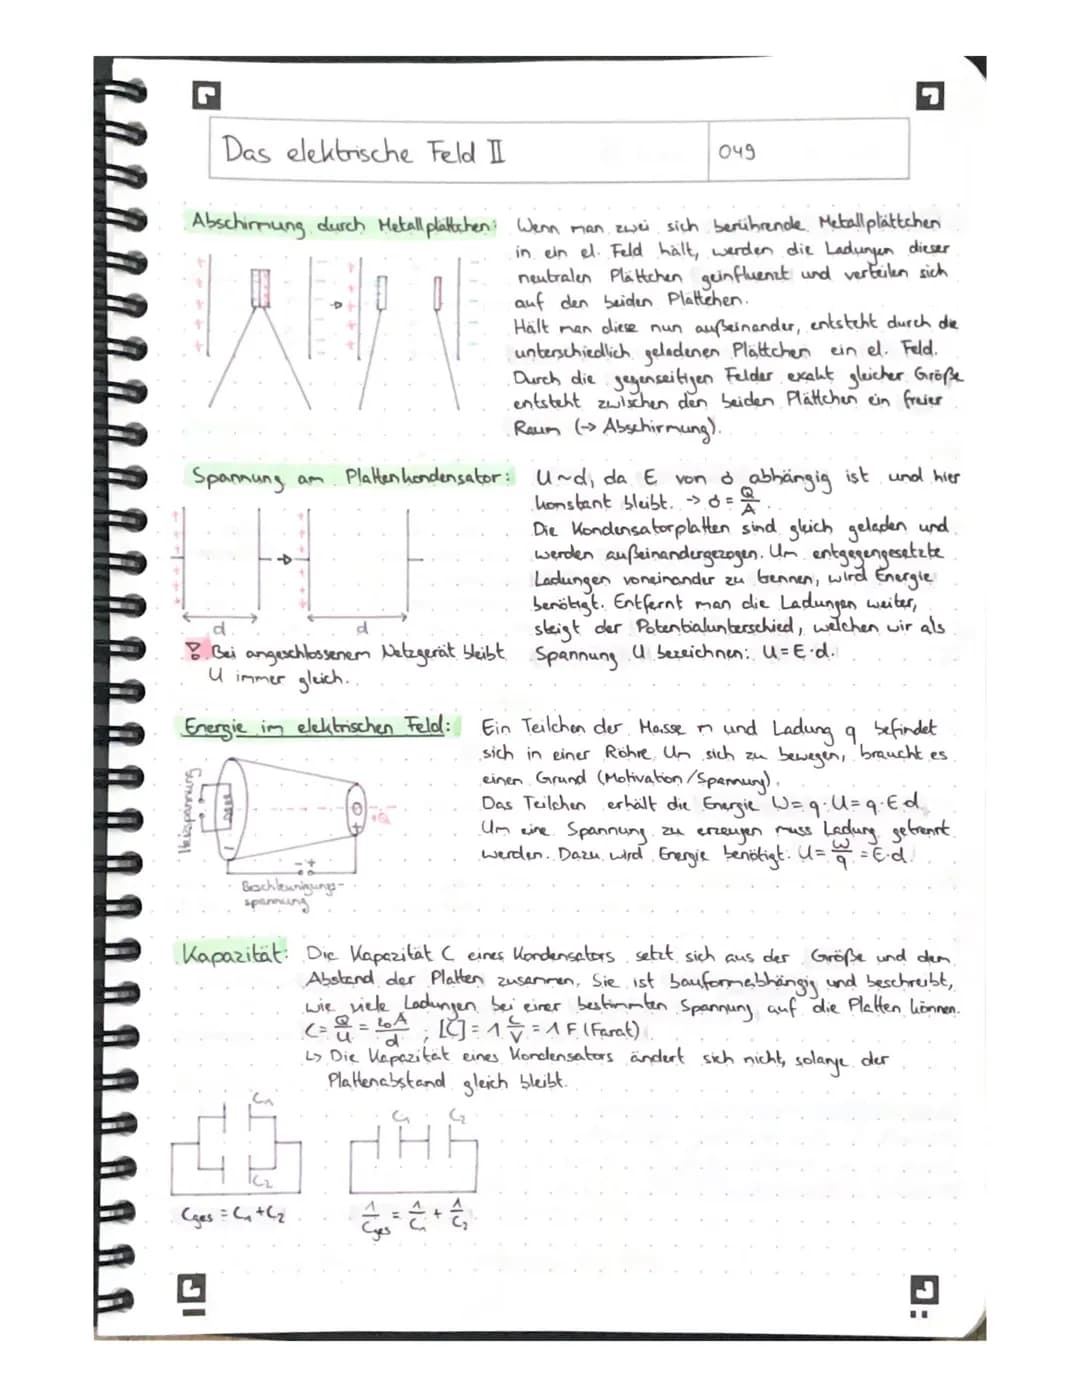 Das elektrische Feld II
049
Abschirmung durch Metallplättchen:
Wenn man zwei sich berührende Metallplättchen
in ein el. Feld hält, werden die Ladungen dieser
neutralen Plättchen geinfluenzt und verteilen sich
auf den beiden Plättchen.
Hält man diese nun außeinander, entsteht durch die
unterschiedlich geladenen Plättchen ein el. Feld.
Durch die gegenseitigen Felder exakt gleicher Größe
entsteht zwischen den beiden Plättchen ein freier
Raum (-> Abschirmung).
Spannung am Plattenkondensator:
U~d, da E von σ abhängig ist und hier
konstant bleibt. -> σ = Q/A
Die Kondensatorplatten sind gleich geladen und
werden außeinandergezogen. Um entgegengesetzte
Ladungen voneinander zu trennen, wird Energie
benötigt. Entfernt man die Ladungen weiter,
steigt der Potentialunterschied, welchen wir als
Spannung U bezeichnen: U=E·d.
d
d
Bei angeschlossenem Netzgerät bleibt
U immer gleich.
Energie im elektrischen Feld:
Ein Teilchen der Masse m und Ladung q befindet
sich in einer Röhre. Um sich zu bewegen, braucht es
einen Grund (Motivation/Spannung).
Das Teilchen erhält die Energie W=q·U=q·E·d
Um eine Spannung zu erzeugen muss Ladung getrennt
werden. Dazu wird Energie benötigt. U = W/q = E·d.
Heizspannung
Beschleunigungs-
spannung
Kapazität: Die Kapazität C eines Kondensators setzt sich aus der Größe und dem
Abstand der Platten zusammen. Sie ist bauformabhängig und beschreibt,
wie viele Ladungen bei einer bestimmten Spannung auf die Platten können.
C = Q/U = ε₀A/d ; [C] = 1 C/V = 1 F (Farat)
↳ Die Kapazität eines Kondensators ändert sich nicht, solange der
Plattenabstand gleich bleibt.
C₁
C₂
C₁ C₂
Cges = C₁+C₂
1/Cges = 1/C₁ + 1/C₂